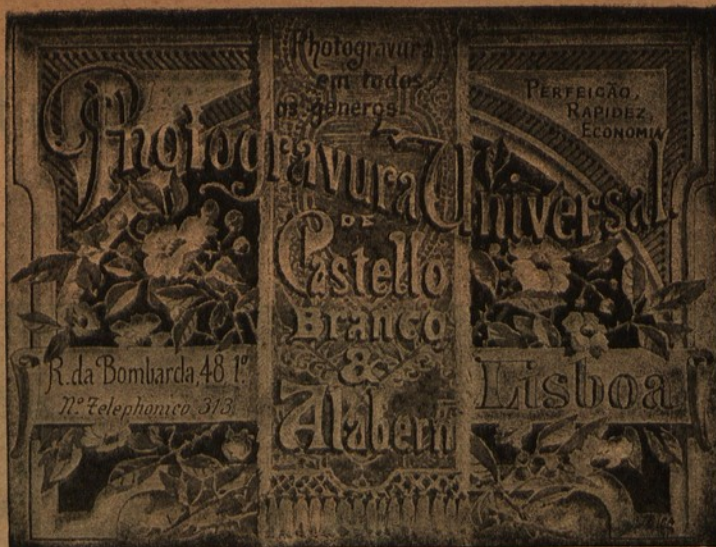 Photogravura
em todos
os generos
PERFEIÇÃO,
RAPIDEZ,
ECONOMIA
Photogravura Universal
DE
Castello
Branco
&
Alabern
R. da Bombarda, 48 1.º
N.º Telephonico 313
Lisboa